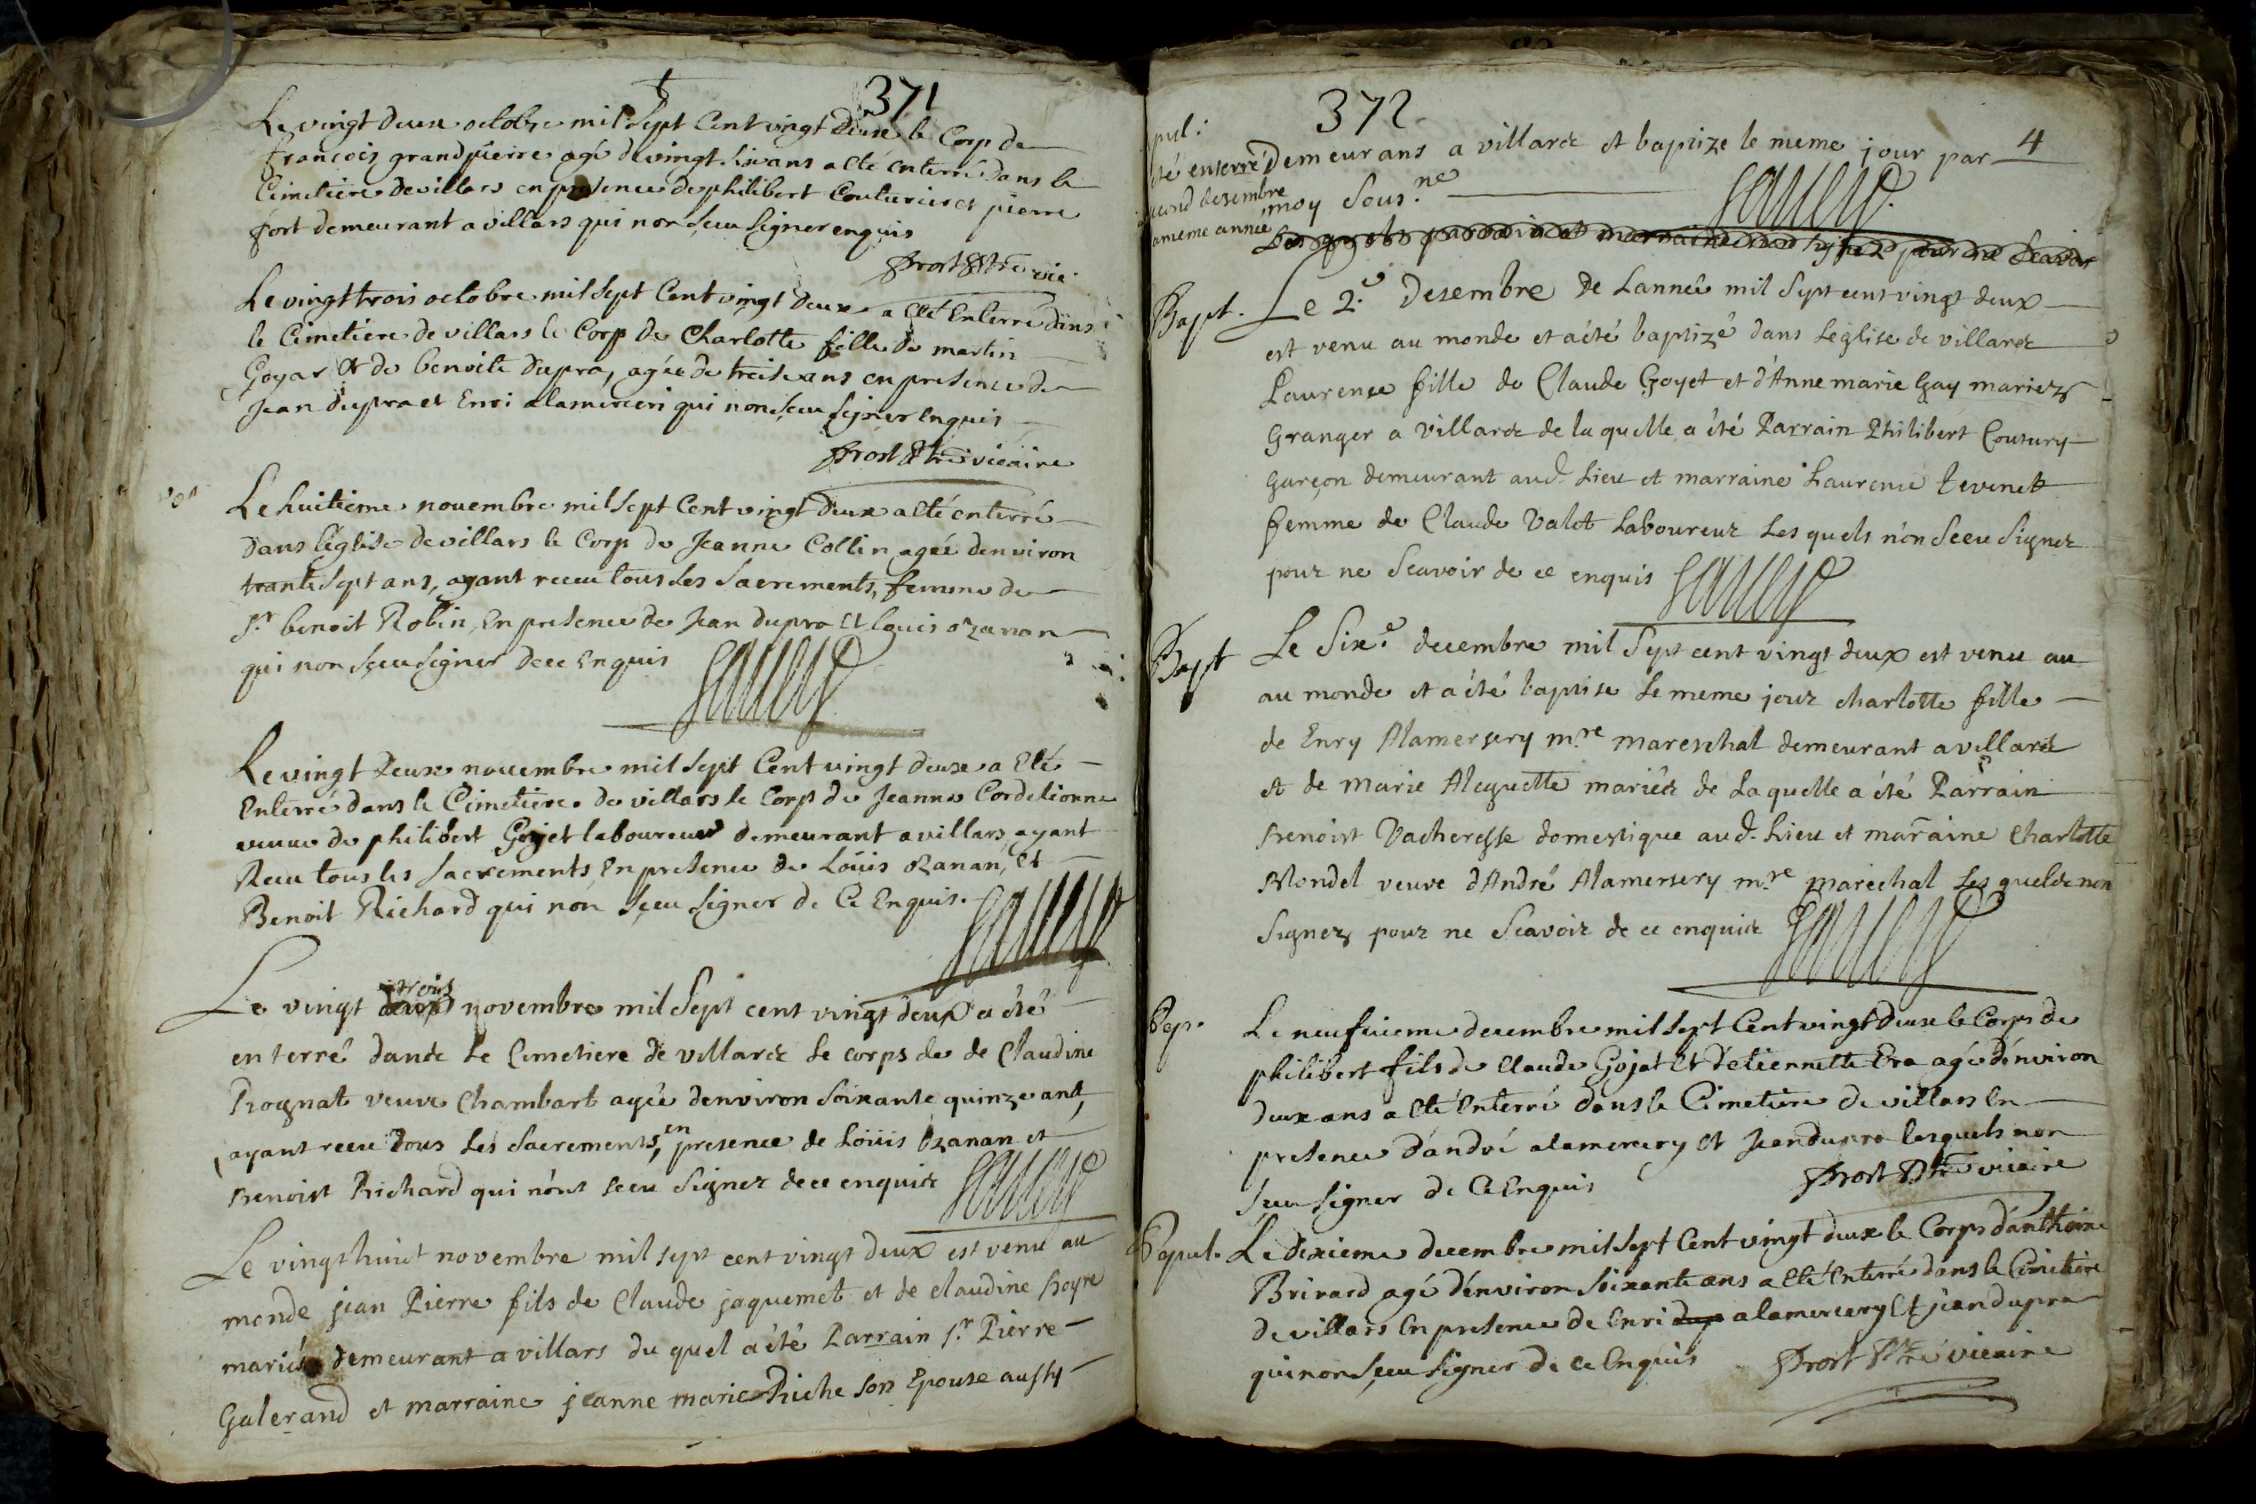 371
Le vingt deux octobre mil sept Cent vingt deux le Corp de
francois grandpierre agé de vingt six ans a eté enterré dans le
Cimetiere de villars en presence de philibert Couturier et pierre
fort demeurant a villars qui non sceu signer enquis
Prost Ptre vic
Le vingt trois octobre mil sept Cent vingt deux a eté enterré dans
le Cimetiere de villars le Corp de Charlotte fille de martin
Goyar et de benoite Dupra, agée de treise ans en presence de
Jean dupra et Enri alamercery qui non sceu signer enquis
Prost Ptre vicaire
Le huitieme novembre mil sept Cent vingt deux a eté enterré
Dans l'église de villars le Corp de Jeanne Collin agée denviron
trante sept ans, ayant receu tous les Sacrements, femme de
Sr benoit Robin, En presence de Jean dupra et louis ozanan
qui non sceu signer de ce Enquis
Le vingt Deux novembre mil sept Cent vingt deux a Eté
Enterré dans le Cimetiere de villars le Corp de Jeanne Cordelionne
veuve de philibert Goyet laboureur demeurant a villars ayant
Receu tous les Sacrements, En presence de Loüis ozanan, et
Benoit Richard qui non sceu signer de Ce Enquis.
trois
Le vingt deux novembre mil sept cent vingt deux a été
enterré dans le Cimetiere de villars le corps de de Claudine
Prognat veuve Chambart agée denviron soixante quinze ans,
en
ayant receu tous les Sacrements, presence de Loüis Ozanan et
Benoist Richard qui n'ont sceu signer de ce enquis
Le vingt huit novembre mil sept cent vingt deux est venu au
monde jean Pierre fils de Claude jaquemet et de claudine
mariés demeurant a villars du quel a été Parrain sr Pierre
Galerand et marraine jeanne marie Riche son Epouse aussy
372
4
été enterré
second desembre
la meme année
Demeurans a villars et baptize le meme jour par
moy Sous.ne
Les quels parrain et marraine non signez pour ne scavoir
Bapt.
Le 2.e Desembre de Lanneé mil sept cent vingt deux
est venu au monde et a été baptizé dans Leglise de villars
Laurence fille de Claude Goyet et d'Anne marie Gay mariez
Granger a villars de la quelle a été Parrain Philibert Coutury
garçon demeurant aud. Lieu et marraine Laurence Tevenet
femme de Claude Valot Laboureur Les quels n'on sceu signer
pour ne Scavoir de ce enquis
Bapt
Le Six.e decembre mil sept cent vingt deux est venu au
au monde et a été baptise le meme jour charlotte fille
de Enry Alamersery m.re mareschal demeurant a villars
et de marie Aleguette mariés de laquelle a été Parrain
Benoist Vacheresse domestique aud. Lieu et marraine Charlotte
Blondel veuve d'André Alamersery m.re marechal Les quels non
signez pour ne Scavoir de ce enquis
Sep.
Le neufvieme decembre mil sept Cent vingt deux le Corps de
philibert fils de Claude Gojat et d'etiennette Era agé d'environ
deux ans a eté enterré dans le Cimetiere de villars en
presence d'andré alamercery et Jean dupra lesquels non
sceu signer de ce enquis
Prost Ptre vicaire
Sepul.
Le dixieme decembre mil sept Cent vingt deux le Corps danthoine
Brirard agé d'environ soixante ans a eté enterré dans le Cimetiere
de villars en presence de Enri dup alamercery et jean dupra
qui non sceu signer de ce enquis
Prost Ptre vicaire